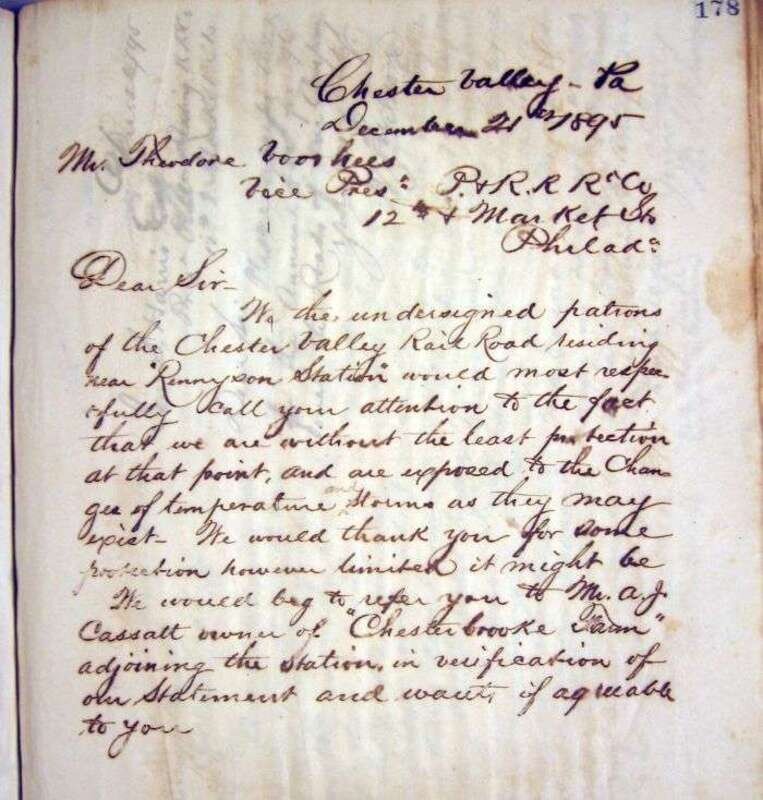 178
Chester Valley - Pa
December 21st 1895
Mr. Theodore Voorhees
Vice Pres. P. & R. R Rd Co
12th & Market Sts
Philada.
Dear Sir-
We the undersigned patrons
of the Chester Valley Rail Road residing
near "Rennyson Station" would most respec-
tfully call your attention to the fact
that we are without the least protection
at that point, and are exposed to the Chan-
ges of temperature and storms as they may
exist - We would thank you for some
protection however limited it might be
We would beg to refer you to Mr. A. J.
Cassatt owner of "Chesterbrooke Farm"
adjoining the station, in verification of
our Statement and wants, if agreeable
to you